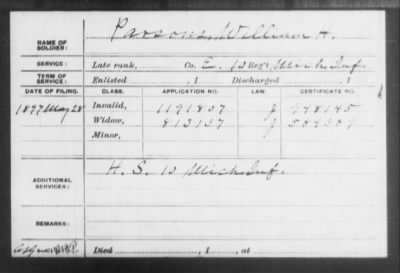 NAME OF SOLDIER: Parsons, William H.
SERVICE: Late rank, Co. E, 10 Reg't Mich. Inf.
TERM OF SERVICE: Enlisted , 1 Discharged , 1
DATE OF FILING. CLASS. APPLICATION NO. LAW. CERTIFICATE NO.
1897 May 28 Invalid, 1191807 J 948145
Widow, 813137 J
Minor,
ADDITIONAL SERVICES: H. S. 10 Mich. Inf.
REMARKS:
Died , 1 , at